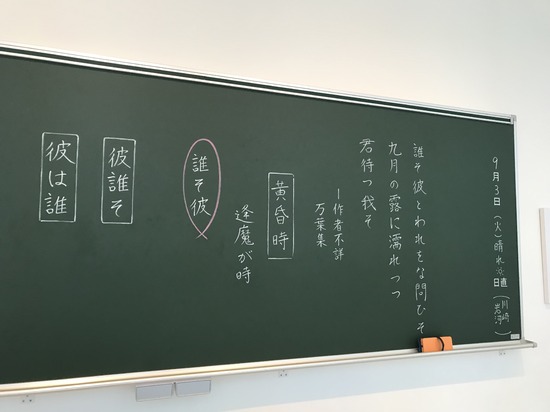 9月3日（火）晴れ 日直（川崎
誰そ彼とわれをな問ひそ
九月の露に濡れつつ
君待つ我そ
ー作者不詳
万葉集
黄昏時
逢魔が時
誰そ彼
彼誰そ
彼は誰